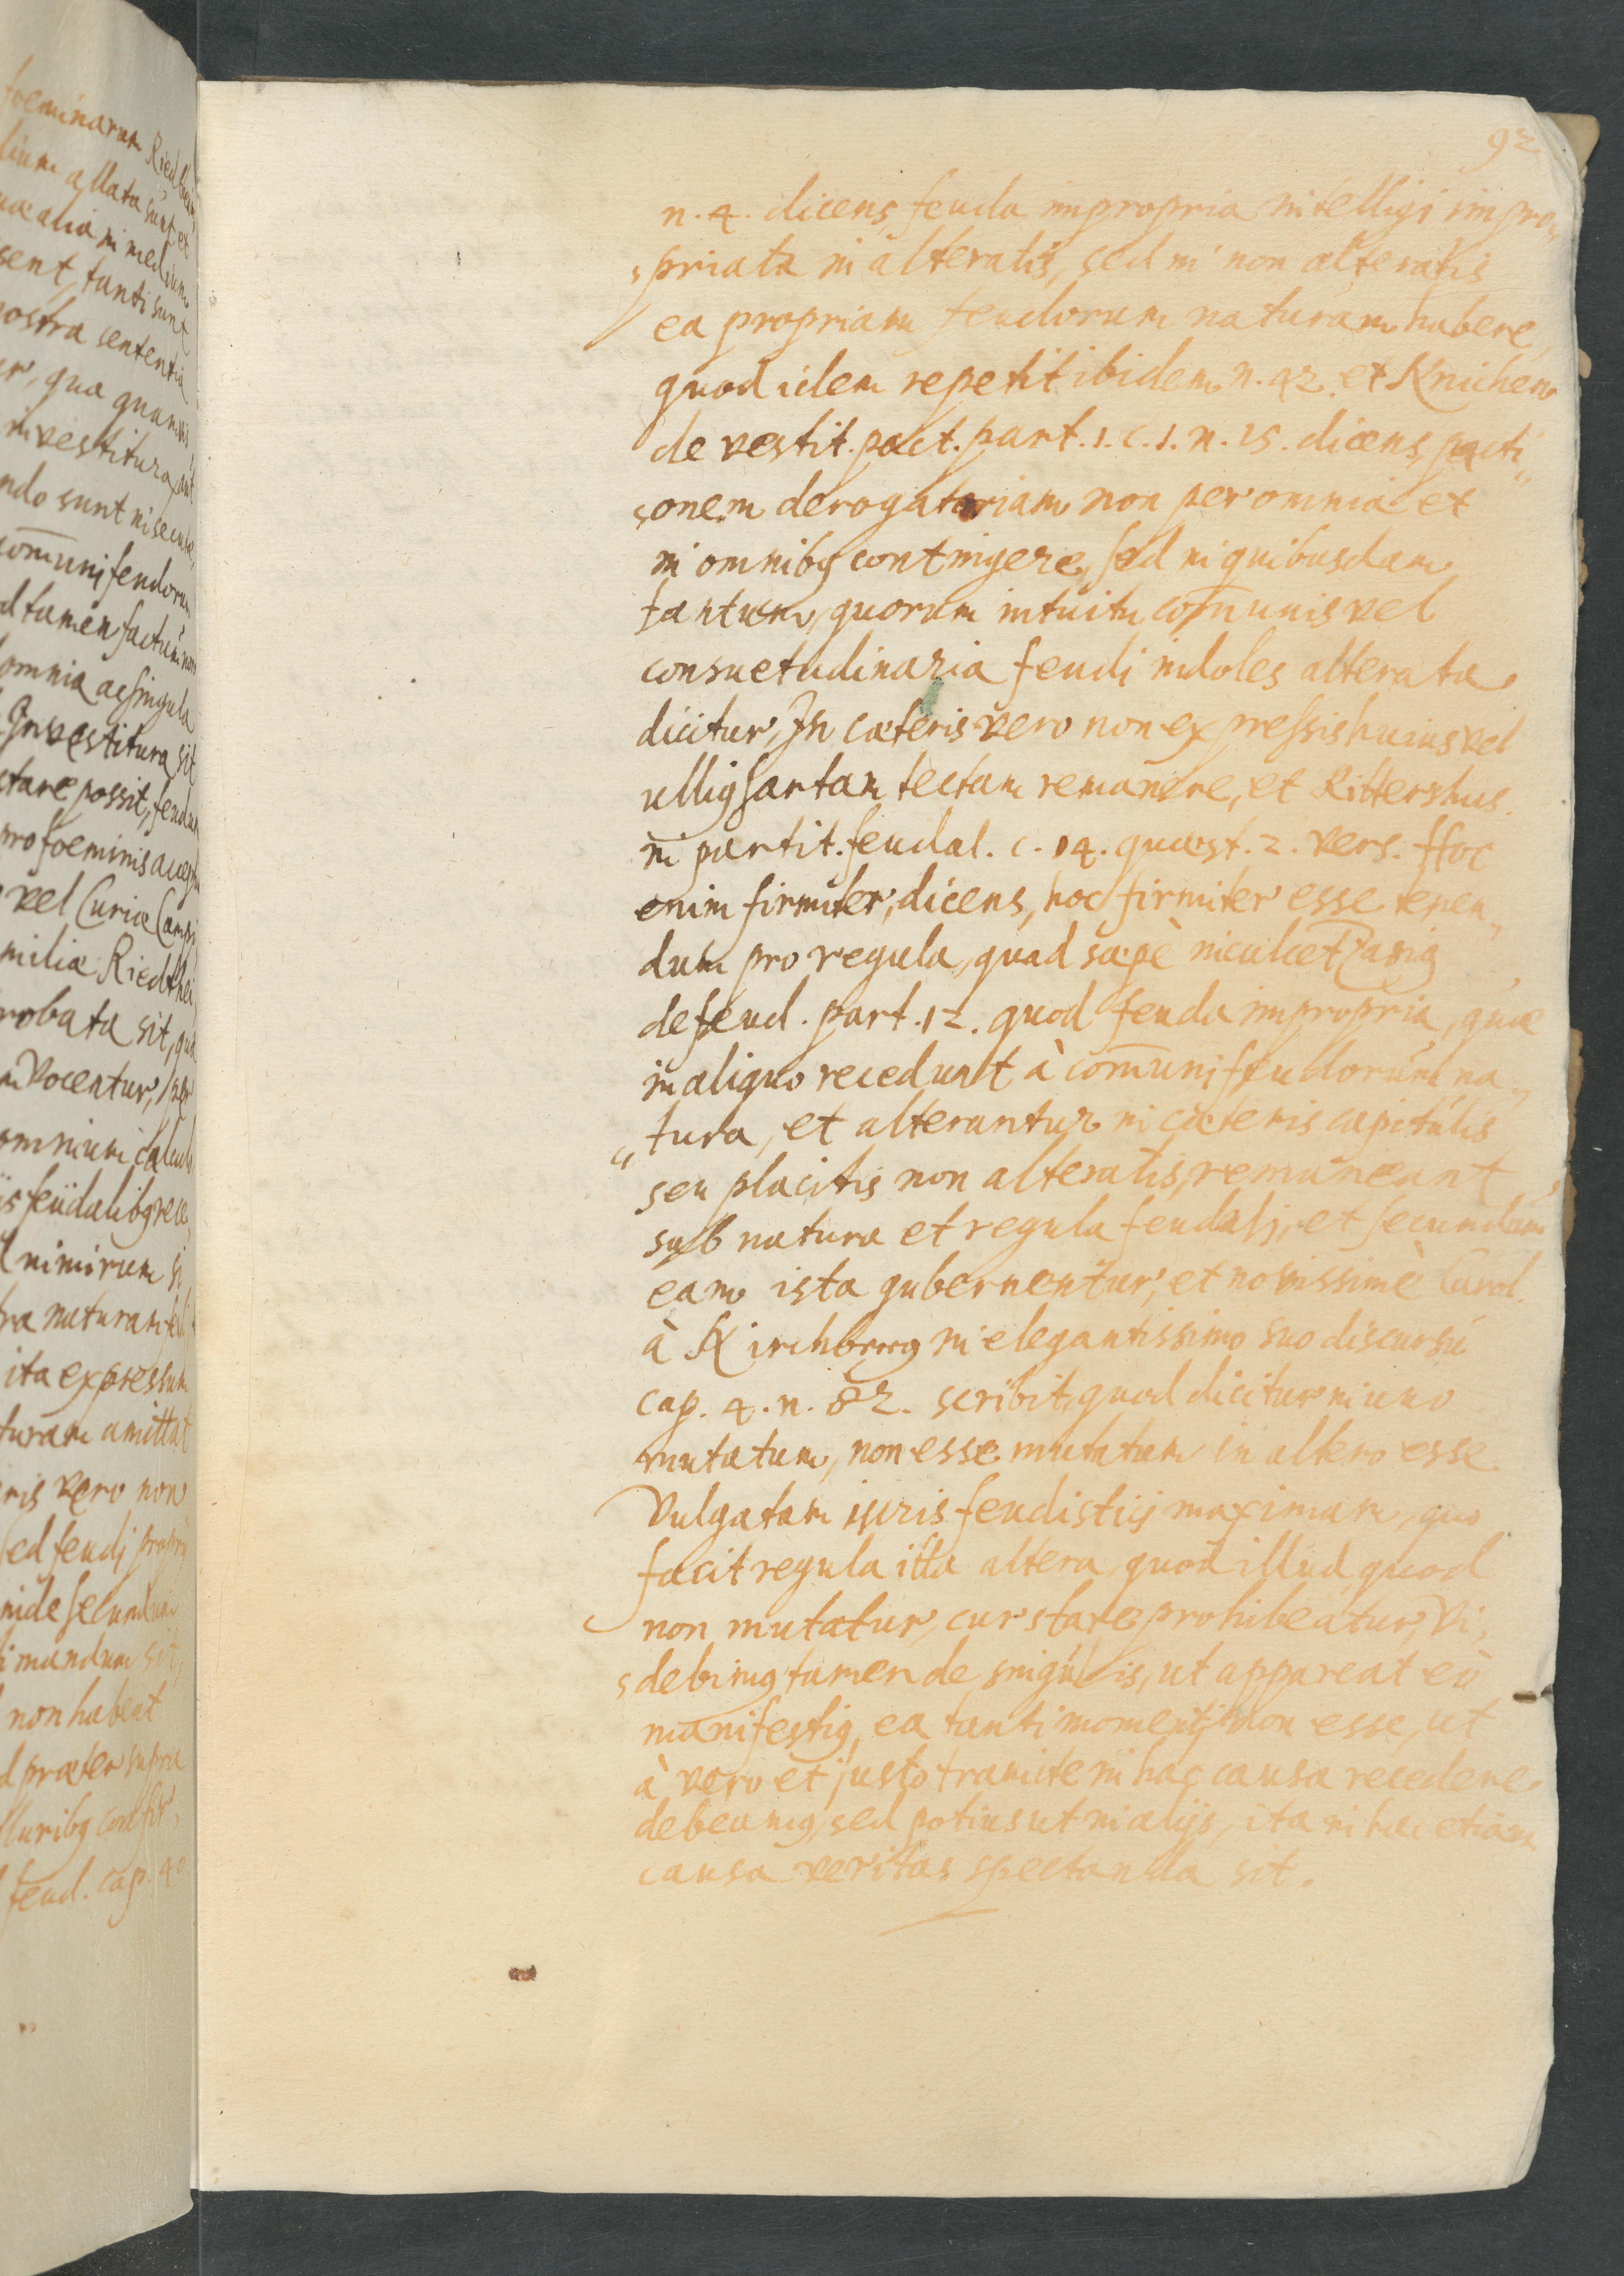 92.
n. 4. dicens, feuda impropria intelligi impro„
„priata in alteratis, sed in non alteratis
ea propriam feudorum naturam habere,
quod idem repetit ibidem n. 42. et Knichen
de vestit. pact. part. 1. c. 1. n. 15. dicens, pacti„
„onem derogatoriam non per omnia et
in omnibꝯ contingere, sed in quibusdam
tantum, quorum intuitu com̄unis vel
consuetudinaria feudi indoles alterata
dicitur, In cæteris vero non expressis huius vel
illiꝯ sartam tectam remanere, et Rittershus.
in partit. feudal. c. 14. quæst. 2. vers. Hoc
enim firmiter, dicens, hoc firmiter esse tenen„
dum pro regula, quod sæpè inculcet Zasiꝯ
de feud. part. 12. quod feuda impropria, quæ
in aliquo recedunt à com̄uni feudorum na„
„tura, et alterantur in cæteris capitulis
seu placitis non alteratis, remaneant
sub natura et regula feudali, et secundum
eam ista gubernentur, et novissimè Carol.
à Kirchberg in elegantissimo suo discursu
cap. 4. n. 82. scribit, quod dicitur in uno
mutatum, non esse mutatum in altero esse
Vulgatam iuris feudisticij maximam, quo
facit regula illa altera, quod illud, quod
non mutatur, cur stare prohibeatur, Vi„
„debimꝯ tamen de singulis, ut appareat eò
manifestiꝯ, ea tanti momenti non esse, ut
à vero et justo tramite in hac causa recedere
debeamꝯ, sed potius ut in alijs, ita in hac etiam
causa veritas spectanda sit.
foeminarum
allata sunt et
alia in medium
sent, tanti sunt
nostra sententia
quæ quamvis
investitura aut
sunt
com̄uni feudorum
tamen factum non
omnia ac singula
Investitura sit
stare possit, feudum
pro foeminis
vel Curiæ
Riedthei
probata sit, qua
Vocentur, per
omnium calculo
feudalibꝯ rece
nimirum si
naturam
ita expressum
turam amittat
ris vero non
sed feudi
inde secundum
mandum sit,
non habeat
præter supra
feud. cap. 40